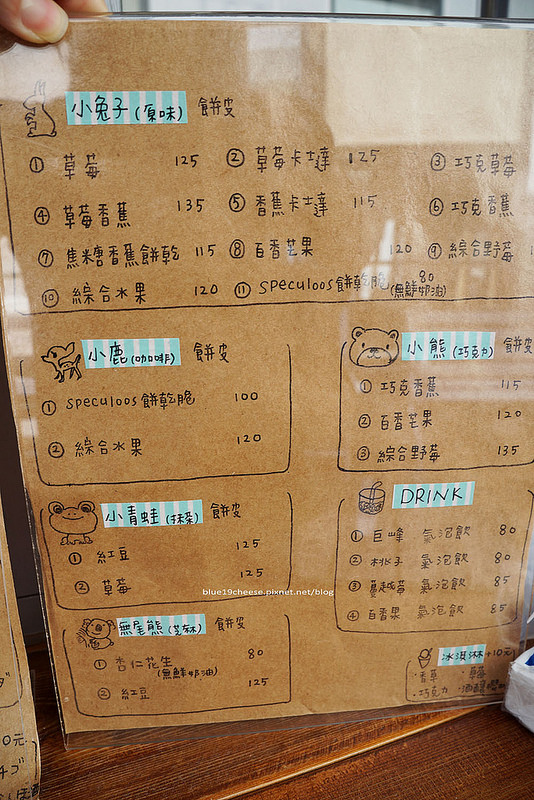 小兔子(原味) 餅皮
① 草莓 125 ② 草莓卡士達 125 ③ 巧克草莓
④ 草莓香蕉 135 ⑤ 香蕉卡士達 115 ⑥ 巧克香蕉
⑦ 焦糖香蕉餅乾 115 ⑧ 百香芒果 120 ⑨ 綜合野莓
⑩ 綜合水果 120 ⑪ speculoos餅乾脆 80
(無鮮奶油)
小鹿(咖啡) 餅皮
① speculoos餅乾脆 100
② 綜合水果 120
小熊(巧克力) 餅皮
① 巧克香蕉 115
② 百香芒果 120
③ 綜合野莓 135
小青蛙(抹茶) 餅皮
① 紅豆 125
② 草莓 125
DRINK
① 巨峰 氣泡飲 80
② 桃子 氣泡飲 80
③ 蔓越莓 氣泡飲 85
④ 百香果 氣泡飲 85
無尾熊(芝麻) 餅皮
① 杏仁花生 80
(無鮮奶油)
② 紅豆 125
冰淇淋+10元
·香草 ·草莓
·巧克力
0元
チブ
blue19cheese.pixnet.net/blog